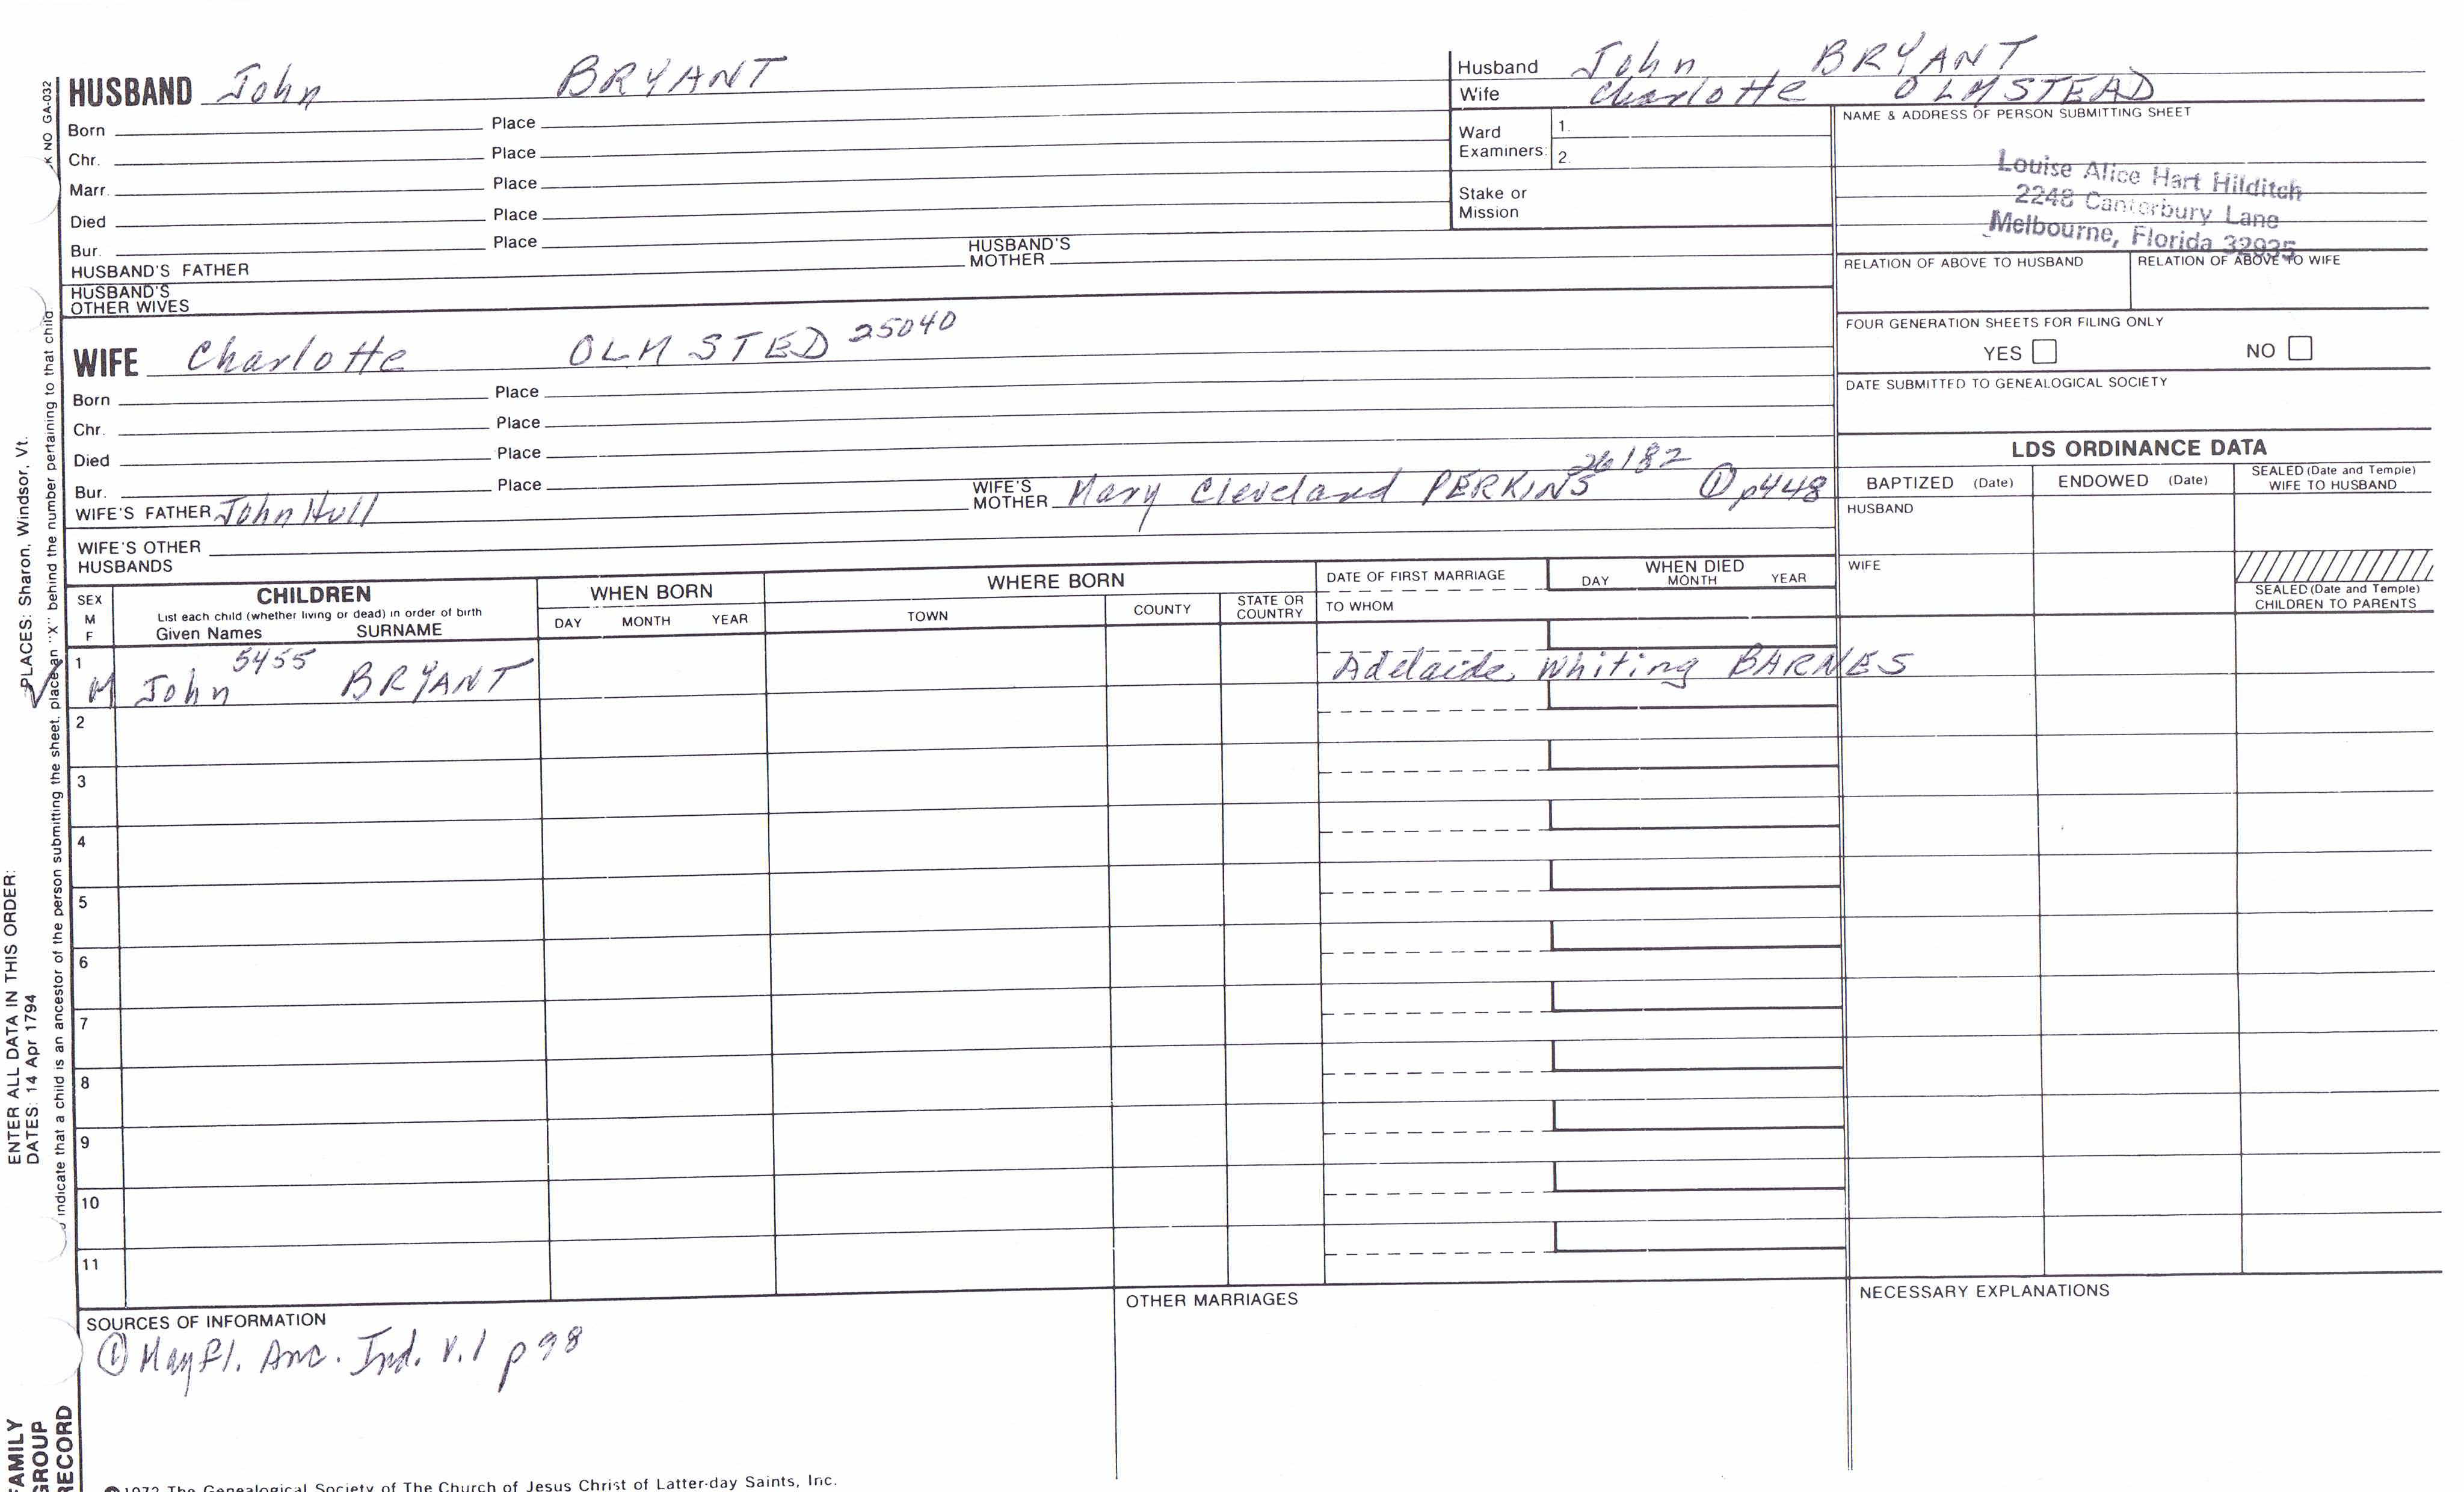 HUSBAND John BRYANT
Born Place
Chr. Place
Marr. Place
Died Place
Bur. Place
HUSBAND'S FATHER HUSBAND'S MOTHER
HUSBAND'S OTHER WIVES
WIFE Charlotte OLMSTED 25040
Born Place
Chr. Place
Died Place
Bur. Place
WIFE'S FATHER John Hull WIFE'S MOTHER Mary Cleveland PERKINS 26182 ① p448
WIFE'S OTHER HUSBANDS
Husband John BRYANT
Wife Charlotte OLMSTEAD
Ward Examiners: 1.
2.
Stake or Mission
NAME & ADDRESS OF PERSON SUBMITTING SHEET
Louise Alice Hart Hilditch
2248 Canterbury Lane
Melbourne, Florida 32935
RELATION OF ABOVE TO HUSBAND RELATION OF ABOVE TO WIFE
FOUR GENERATION SHEETS FOR FILING ONLY
YES NO
DATE SUBMITTED TO GENEALOGICAL SOCIETY
LDS ORDINANCE DATA
BAPTIZED (Date) ENDOWED (Date) SEALED (Date and Temple) WIFE TO HUSBAND
HUSBAND
WIFE
SEALED (Date and Temple) CHILDREN TO PARENTS
SEX M F
CHILDREN
List each child (whether living or dead) in order of birth
Given Names SURNAME
WHEN BORN
DAY MONTH YEAR
WHERE BORN
TOWN COUNTY STATE OR COUNTRY
DATE OF FIRST MARRIAGE
TO WHOM
WHEN DIED
DAY MONTH YEAR
1 M John 5455 BRYANT Adelaide Whiting BARNES
2
3
4
5
6
7
8
9
10
11
SOURCES OF INFORMATION
① Mayfl. Anc. Ind. V.1 p 98
OTHER MARRIAGES
NECESSARY EXPLANATIONS
1972 The Genealogical Society of The Church of Jesus Christ of Latter-day Saints, Inc.
NO GA-032
PLACES: Sharon, Windsor, Vt.
ENTER ALL DATA IN THIS ORDER:
DATES: 14 Apr 1794
indicate that a child is an ancestor of the person submitting the sheet, place an "X" behind the number pertaining to that child
FAMILY
GROUP
RECORD